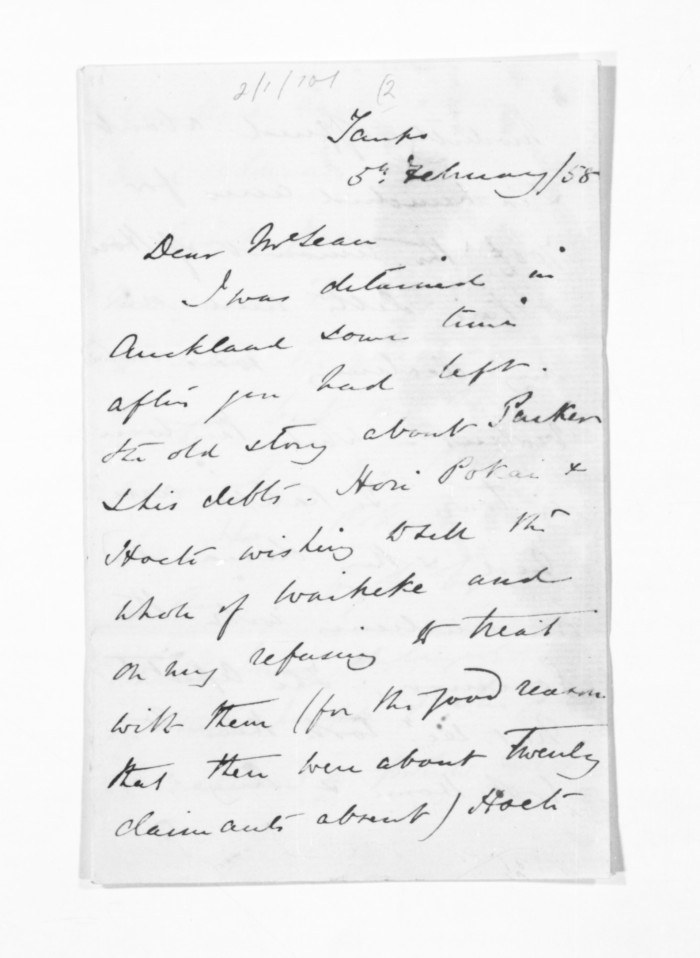 2/1/101 (2
5th February/58
Dear McLean
I was detained in
Auckland some time
after you had left.
the old story about Parker
& his debts. Hori Pokai &
Hoete wishing to sell the
whole of Waiheke and
on my refusing to treat
with them (for the good reason
that there were about twenty
claimants absent) Hoete